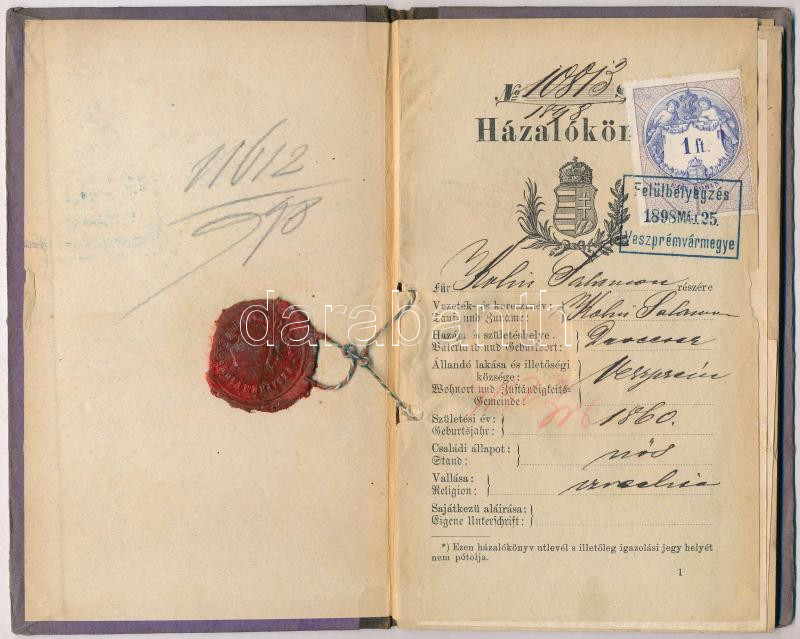 11612
898
№ 10813
1898
Házalókön
1 ft.
Felülbélyegzés
1898 MÁJ 25.
Veszprémvármegye
Für Kohn Salamon részére
Vezeték- és keresztnév: Kohn Salamon
Tauf- und Zuname:
Hazája és születéshelye
Vaterland und Geburtsort:
Állandó lakása és illetőségi
községe: Veszprém
Wohnort und Zuständigkeits-
Gemeinde:
Születési év: 1860.
Geburtsjahr:
Családi állapot: nős
Stand:
Vallása: izraelita
Religion:
Sajátkezű aláírása:
Eigene Unterschrift:
*) Ezen házalókönyv utlevél s illetőleg igazolási jegy helyét
nem pótolja.
1
darabanth